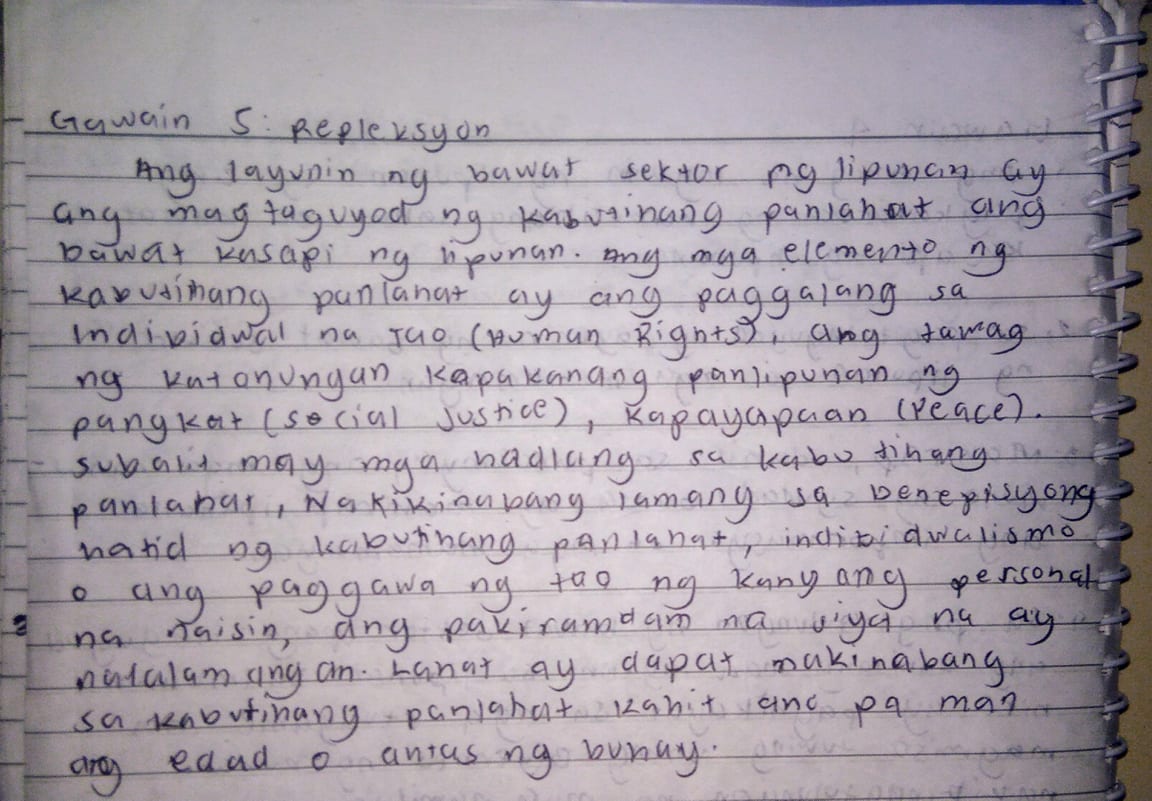 Gawain 5: Repleksyon
Ang layunin ng bawat sektor ng lipunan ay
ang mag taguyod ng kabutihang panlahat ang
bawat kasapi ng lipunan. Ang mga elemento ng
kabutihang panlahat ay ang paggalang sa
Indibidwal na Tao (Human Rights), ang tawag
ng katonungan kapakanang panlipunan ng
pangkat (social justice), kapayapaan (Peace).
subalit may mga hadlang sa kabutihang
panlahat, Nakikinabang lamang sa benepisyong
hatid ng kabutihang panlahat, indibidwalismo
o ang paggawa ng tao ng kanyang personal
na naisin, ang pakiramdam na siya na ay
nalalamangan. Lahat ay dapat makinabang
sa kabutihang panlahat kahit ano pa man
ang edad o antas ng buhay.